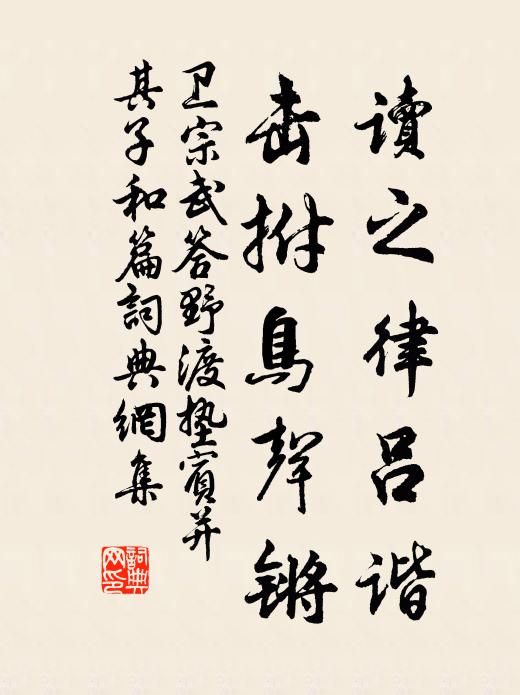 讀之律呂諧
击拊鳥聲锵
卫宗武答野渡垫賓并
其子和篇詞典網集
詞典网印